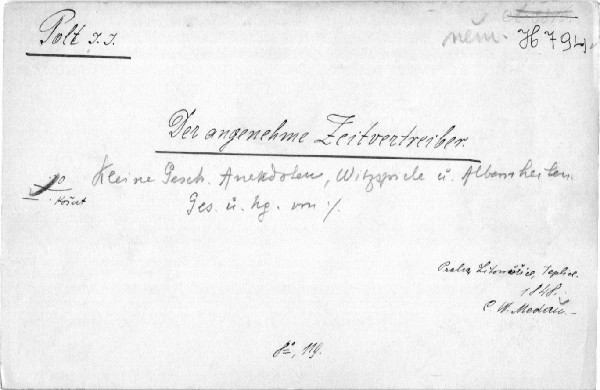 Polt J. J.
něm. H 794.
Der angenehme Zeitvertreiber.
Kleine Gesch. Anekdoten, Witzspiele u. Albernheiten.
Ges. u. hg. von %.
Praha, Litoměřice, Teplice.
1848.
C. W. Medau.-
8°, 119.